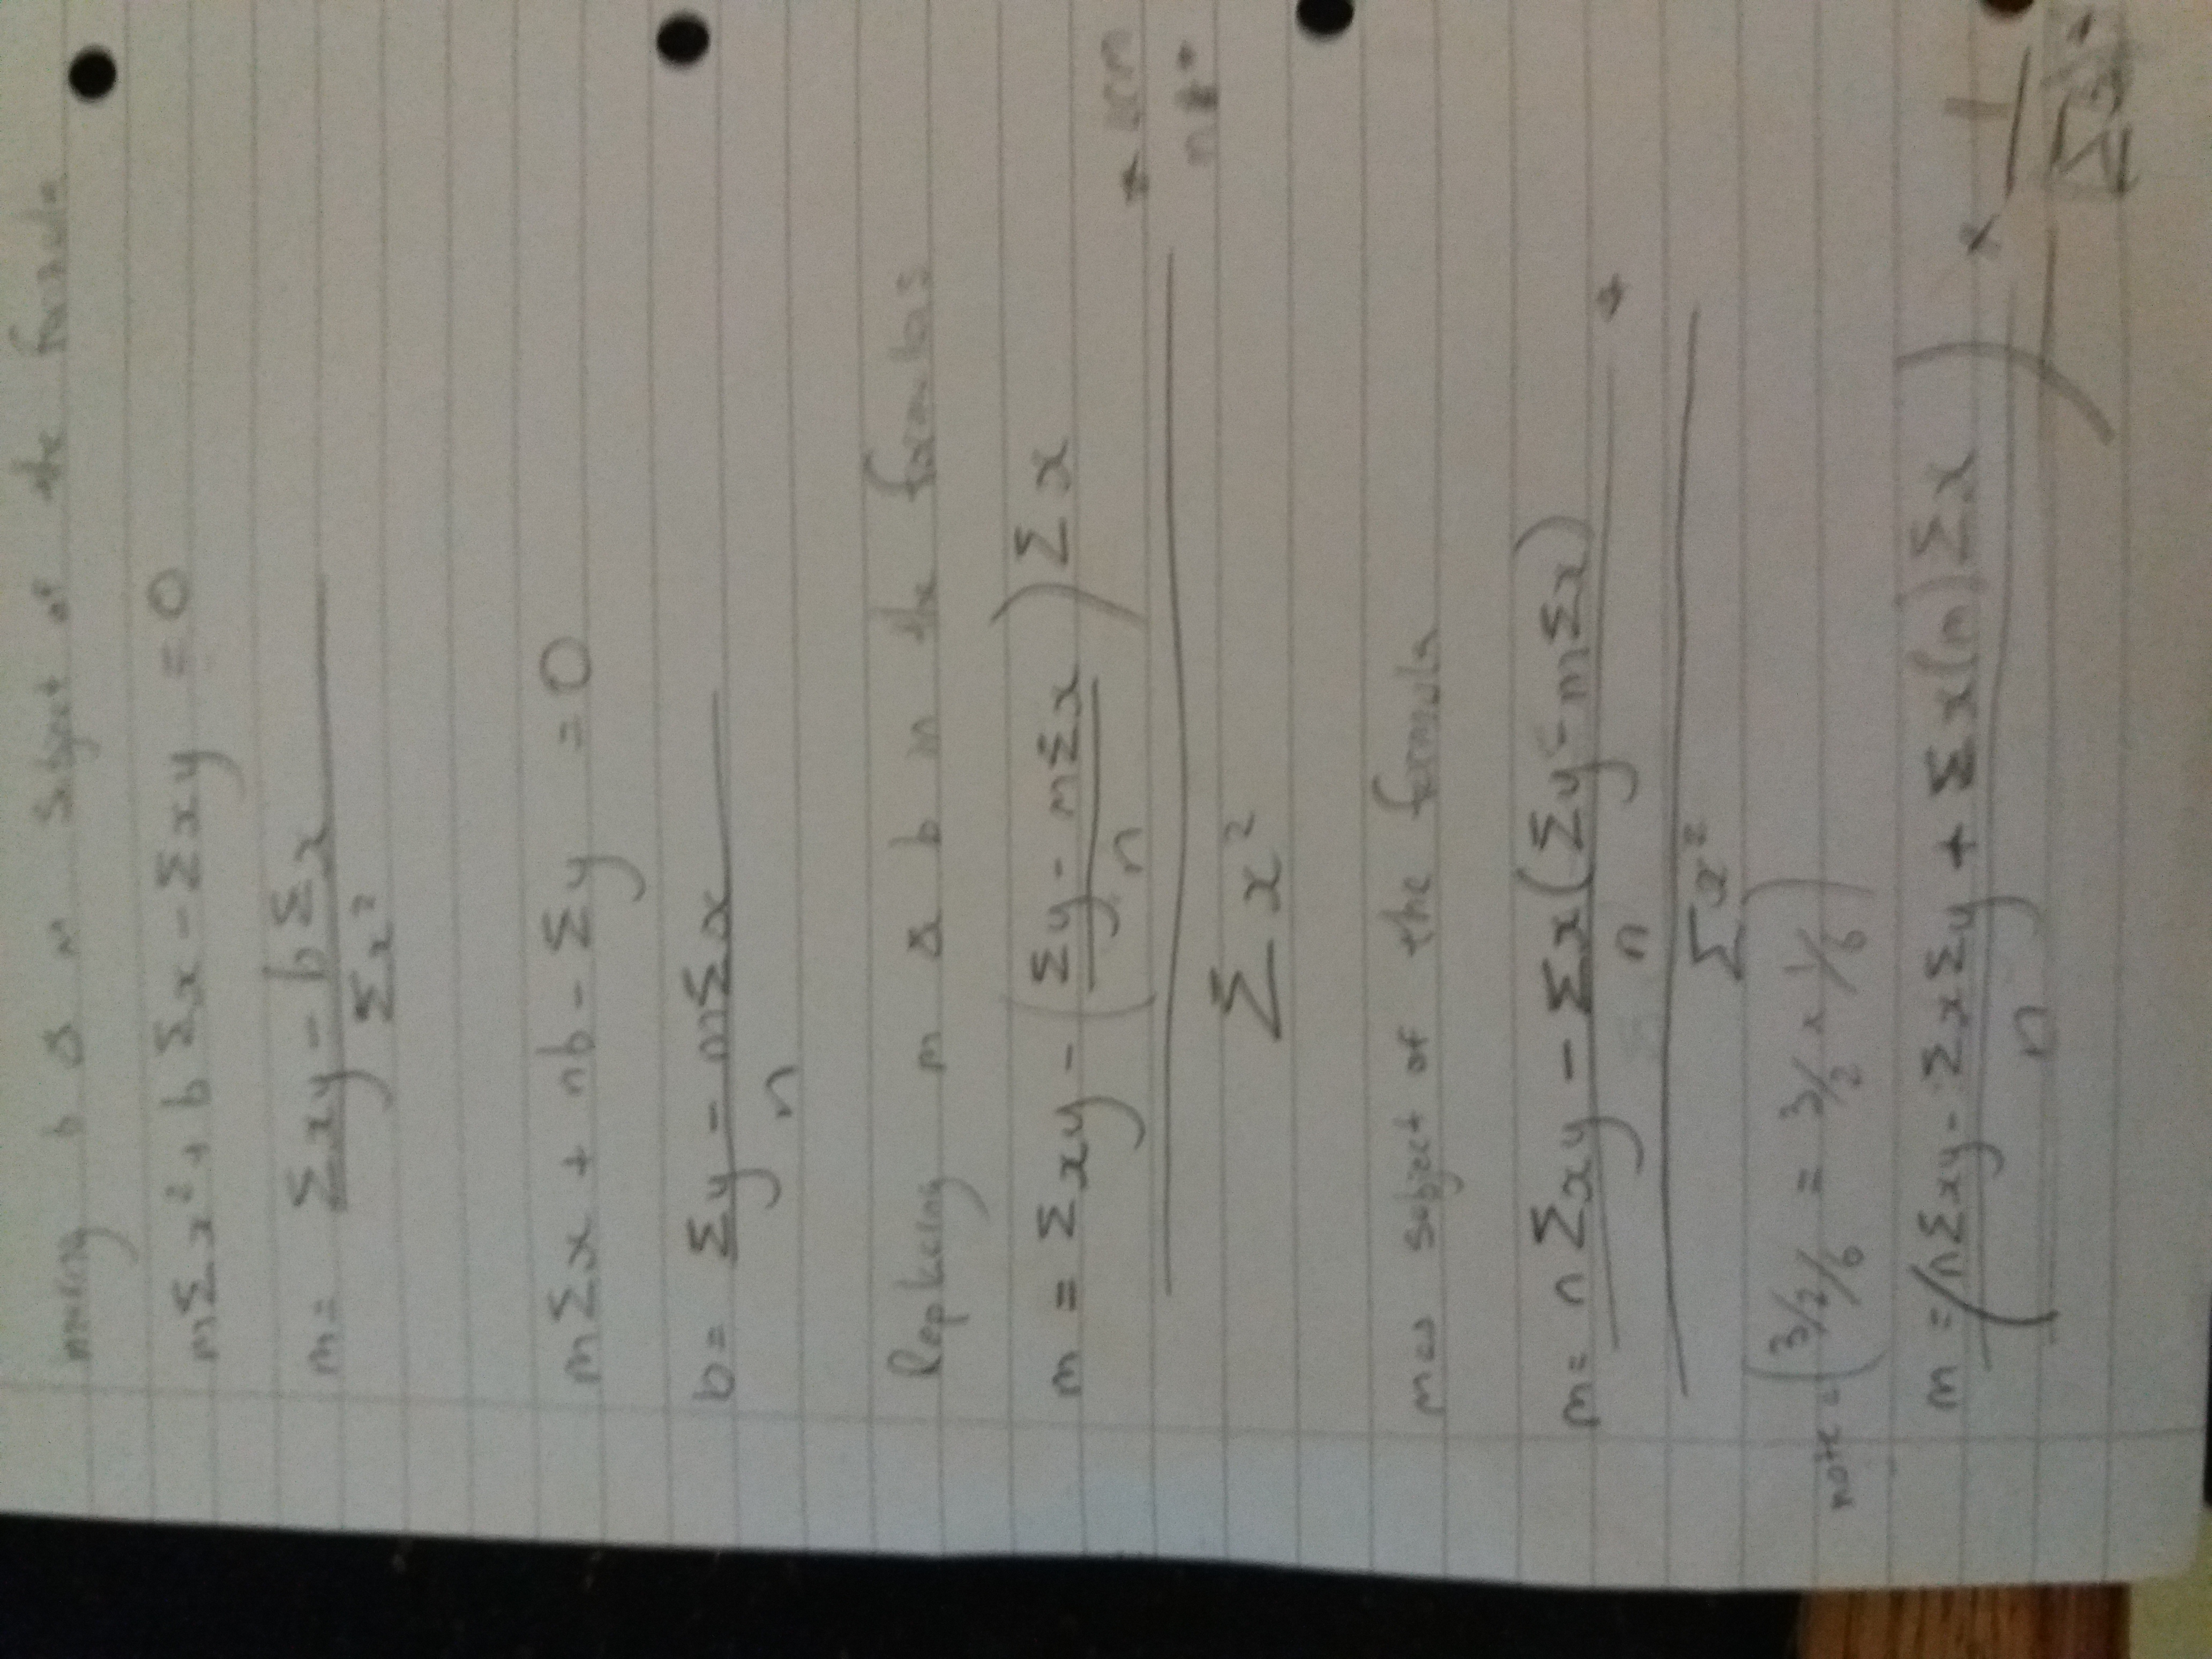 making b & m subject of the formula
mΣx² + bΣx - Σxy = 0
m = Σxy - bΣx
Σx²
mΣx + nb - Σy = 0
b = Σy - mΣx
n
Replacing m & b in the formulas
m = Σxy - (Σy - mΣx / n) Σx
Σx²
m as subject of the formula
m = nΣxy - Σx(Σy - mΣx)
n
Σx²
note = (3/2/6 = 3/2 × 1/6)
m = (nΣxy - ΣxΣy + Σx(m)Σx / n) × 1